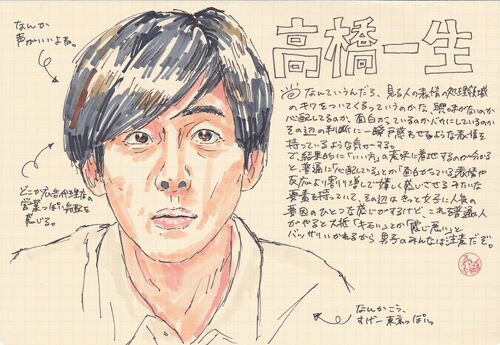 なんか
声がいいよね。
高橋一生
なんていうんだろ、見る人の表情の処理領域
のキワをついてくるっていうのかな、興味がないのか
心配してるのか、面白がっているのかバカにしているのか
その辺の判断に一瞬戸惑わせるような表情を
持っているような気がする。
で、結果的に「いい方」の意味に着地するのが分かる
と普通に「心配している」とか「面白がっている」表情や
反応より割り増しで嬉しく感じさせるみたいな
要素を持っていて、その辺はきっと女子に人気の
要因のひとつな感じがするけど、これを普通の人
がやると大抵「キモい」とか「感じ悪い」と
バッサリいかれるから男子のみんなは注意だぞ。
どこか広告代理店の
営業っぽい気配を
感じる。
なんかこう、
すげー東京っぽい。